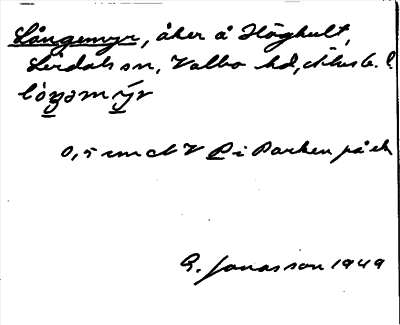 Långemyr, åker å Höghult,
Lerdals sn, Valbo hd, Älvsb. l.
lòŋəmýr
0,5 cm V P i Parken på ek
G. Jonasson 1949